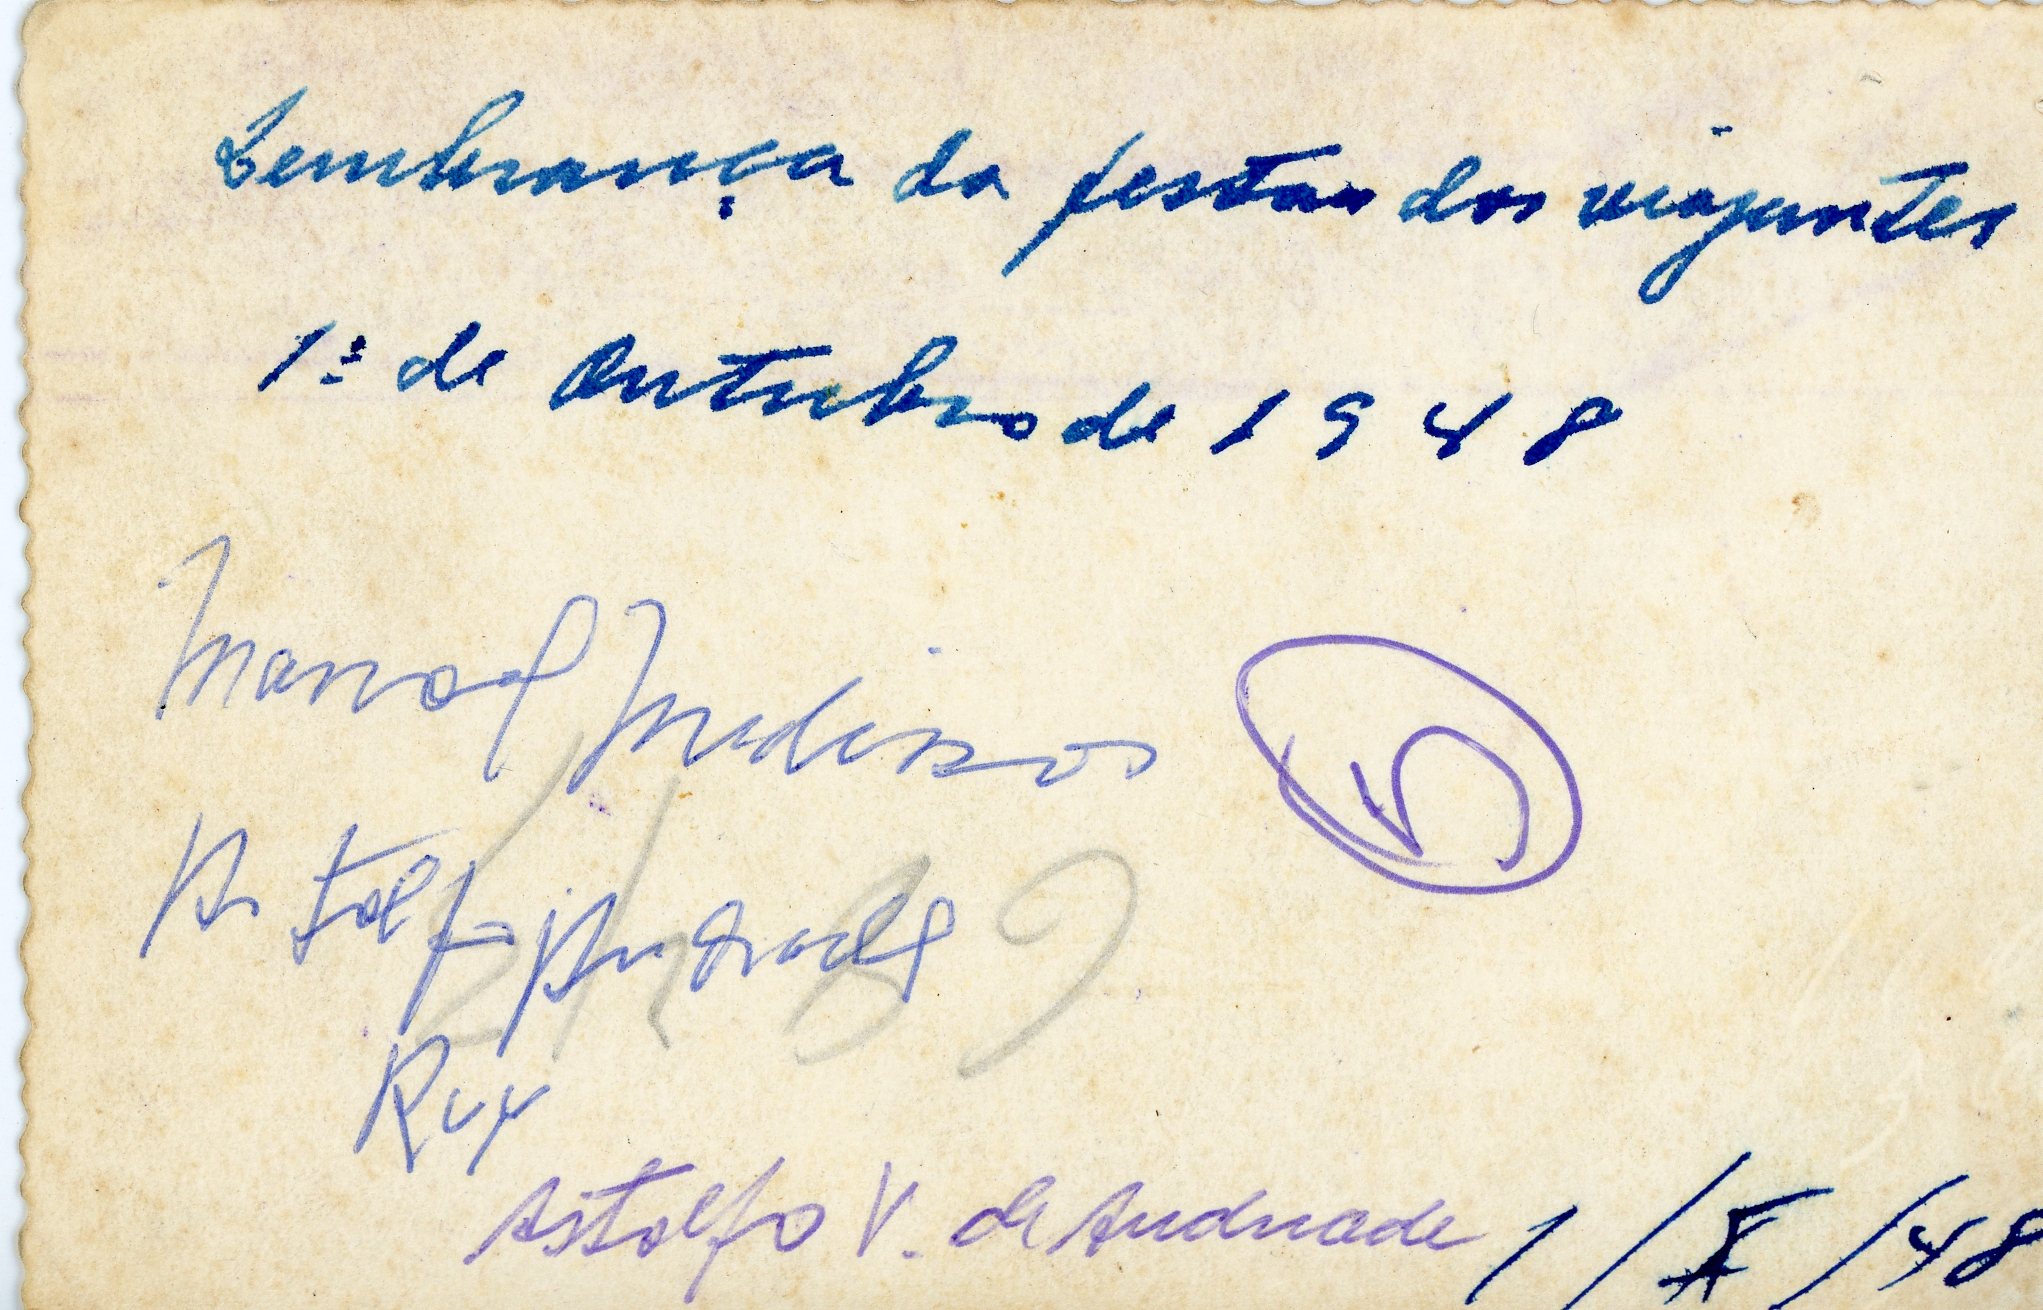 Lembrança da festa dos viajantes
1º de Outubro de 1948
Manoel Medeiros
Astolfo Andrade
Ruy
Astolfo V. de Andrade 1/X/48